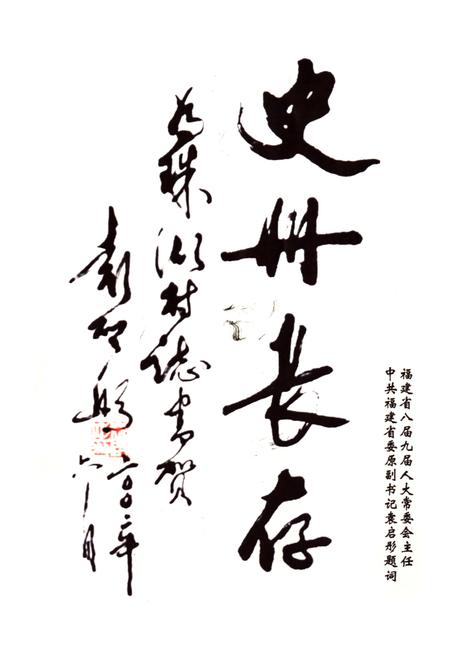 福建省八届九届人大常委会主任
中共福建省委原副书记袁启彤题词
史册长存
为珠湖村誌书贺
袁启彤
二〇〇二年
六月